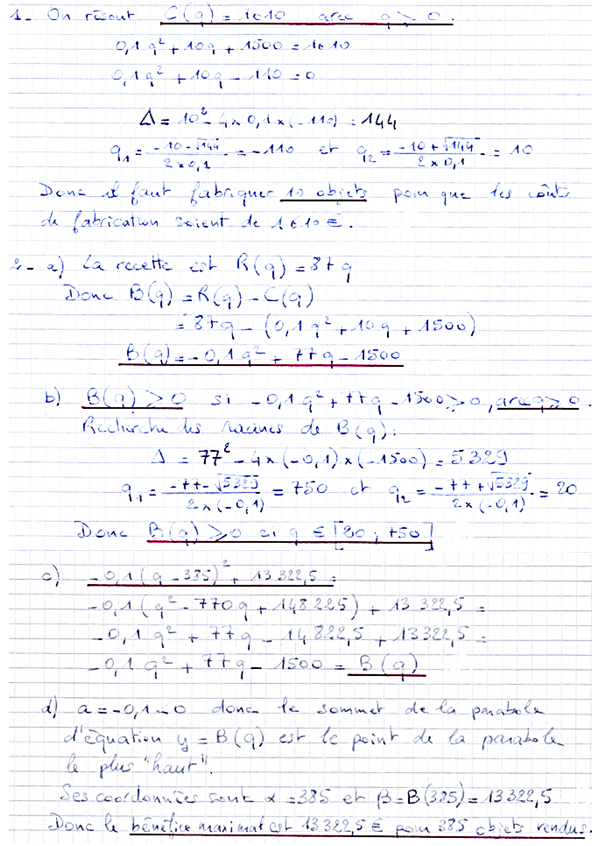 1. On résout C(q) = 1610 avec q ≥ 0.
0,1q² + 10q + 1500 = 1610
0,1q² + 10q - 110 = 0
Δ = 10² - 4×0,1×(-110) = 144
q₁ = (-10-√144)/(2×0,1) = -110 et q₂ = (-10+√144)/(2×0,1) = 10
Donc il faut fabriquer 10 objets pour que les coûts
de fabrication soient de 1610 €.
2- a) La recette est R(q) = 87q
Donc B(q) = R(q) - C(q)
= 87q - (0,1q² + 10q + 1500)
B(q) = -0,1q² + 77q - 1500
b) B(q) ≥ 0 si -0,1q² + 77q - 1500 ≥ 0, avec q ≥ 0.
Recherche des racines de B(q):
Δ = 77² - 4×(-0,1)×(-1500) = 5329
q₁ = (-77-√5329)/(2×(-0,1)) = 750 et q₂ = (-77+√5329)/(2×(-0,1)) = 20
Donc B(q) ≥ 0 si q ∈ [20 ; 750]
c) -0,1(q-385)² + 13 322,5 =
-0,1(q² - 770q + 148 225) + 13 322,5 =
-0,1q² + 77q - 14 822,5 + 13322,5 =
-0,1q² + 77q - 1500 = B(q)
d) a = -0,1 < 0 donc le sommet de la parabole
d'équation y = B(q) est le point de la parabole
le plus "haut".
Ses coordonnées sont α = 385 et β = B(385) = 13322,5
Donc le bénéfice maximal est 13 322,5 € pour 385 objets vendus.